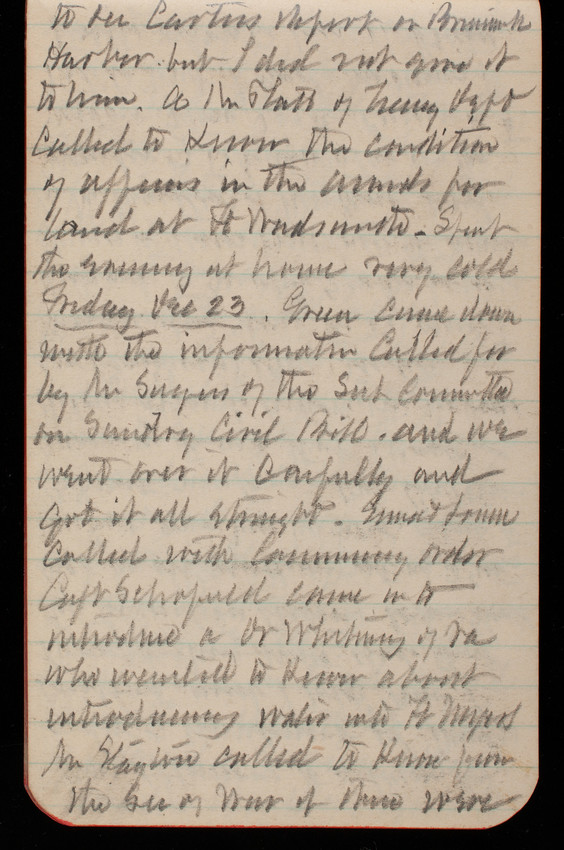 to see Carters report on Brunswick
Harbor but I did not give it
to him. A Mr Platt of
Called to Know the condition
of affairs in the awards for
land at Ft Wadsworth - Spent
the evening at home very cold
Friday Dec 23. Green came down
with the information Called for
by Mr Sayers of the Sub Committee
on Sundry Civil Bill. and we
went over it carefully and
got it all straight.
called with Casemate order
Capt Schofield came in to
introduce a Dr Whiting of Va
who wanted to Know about
introducing water into Ft Myer
Mr called to Know from
the Sec of War if there were